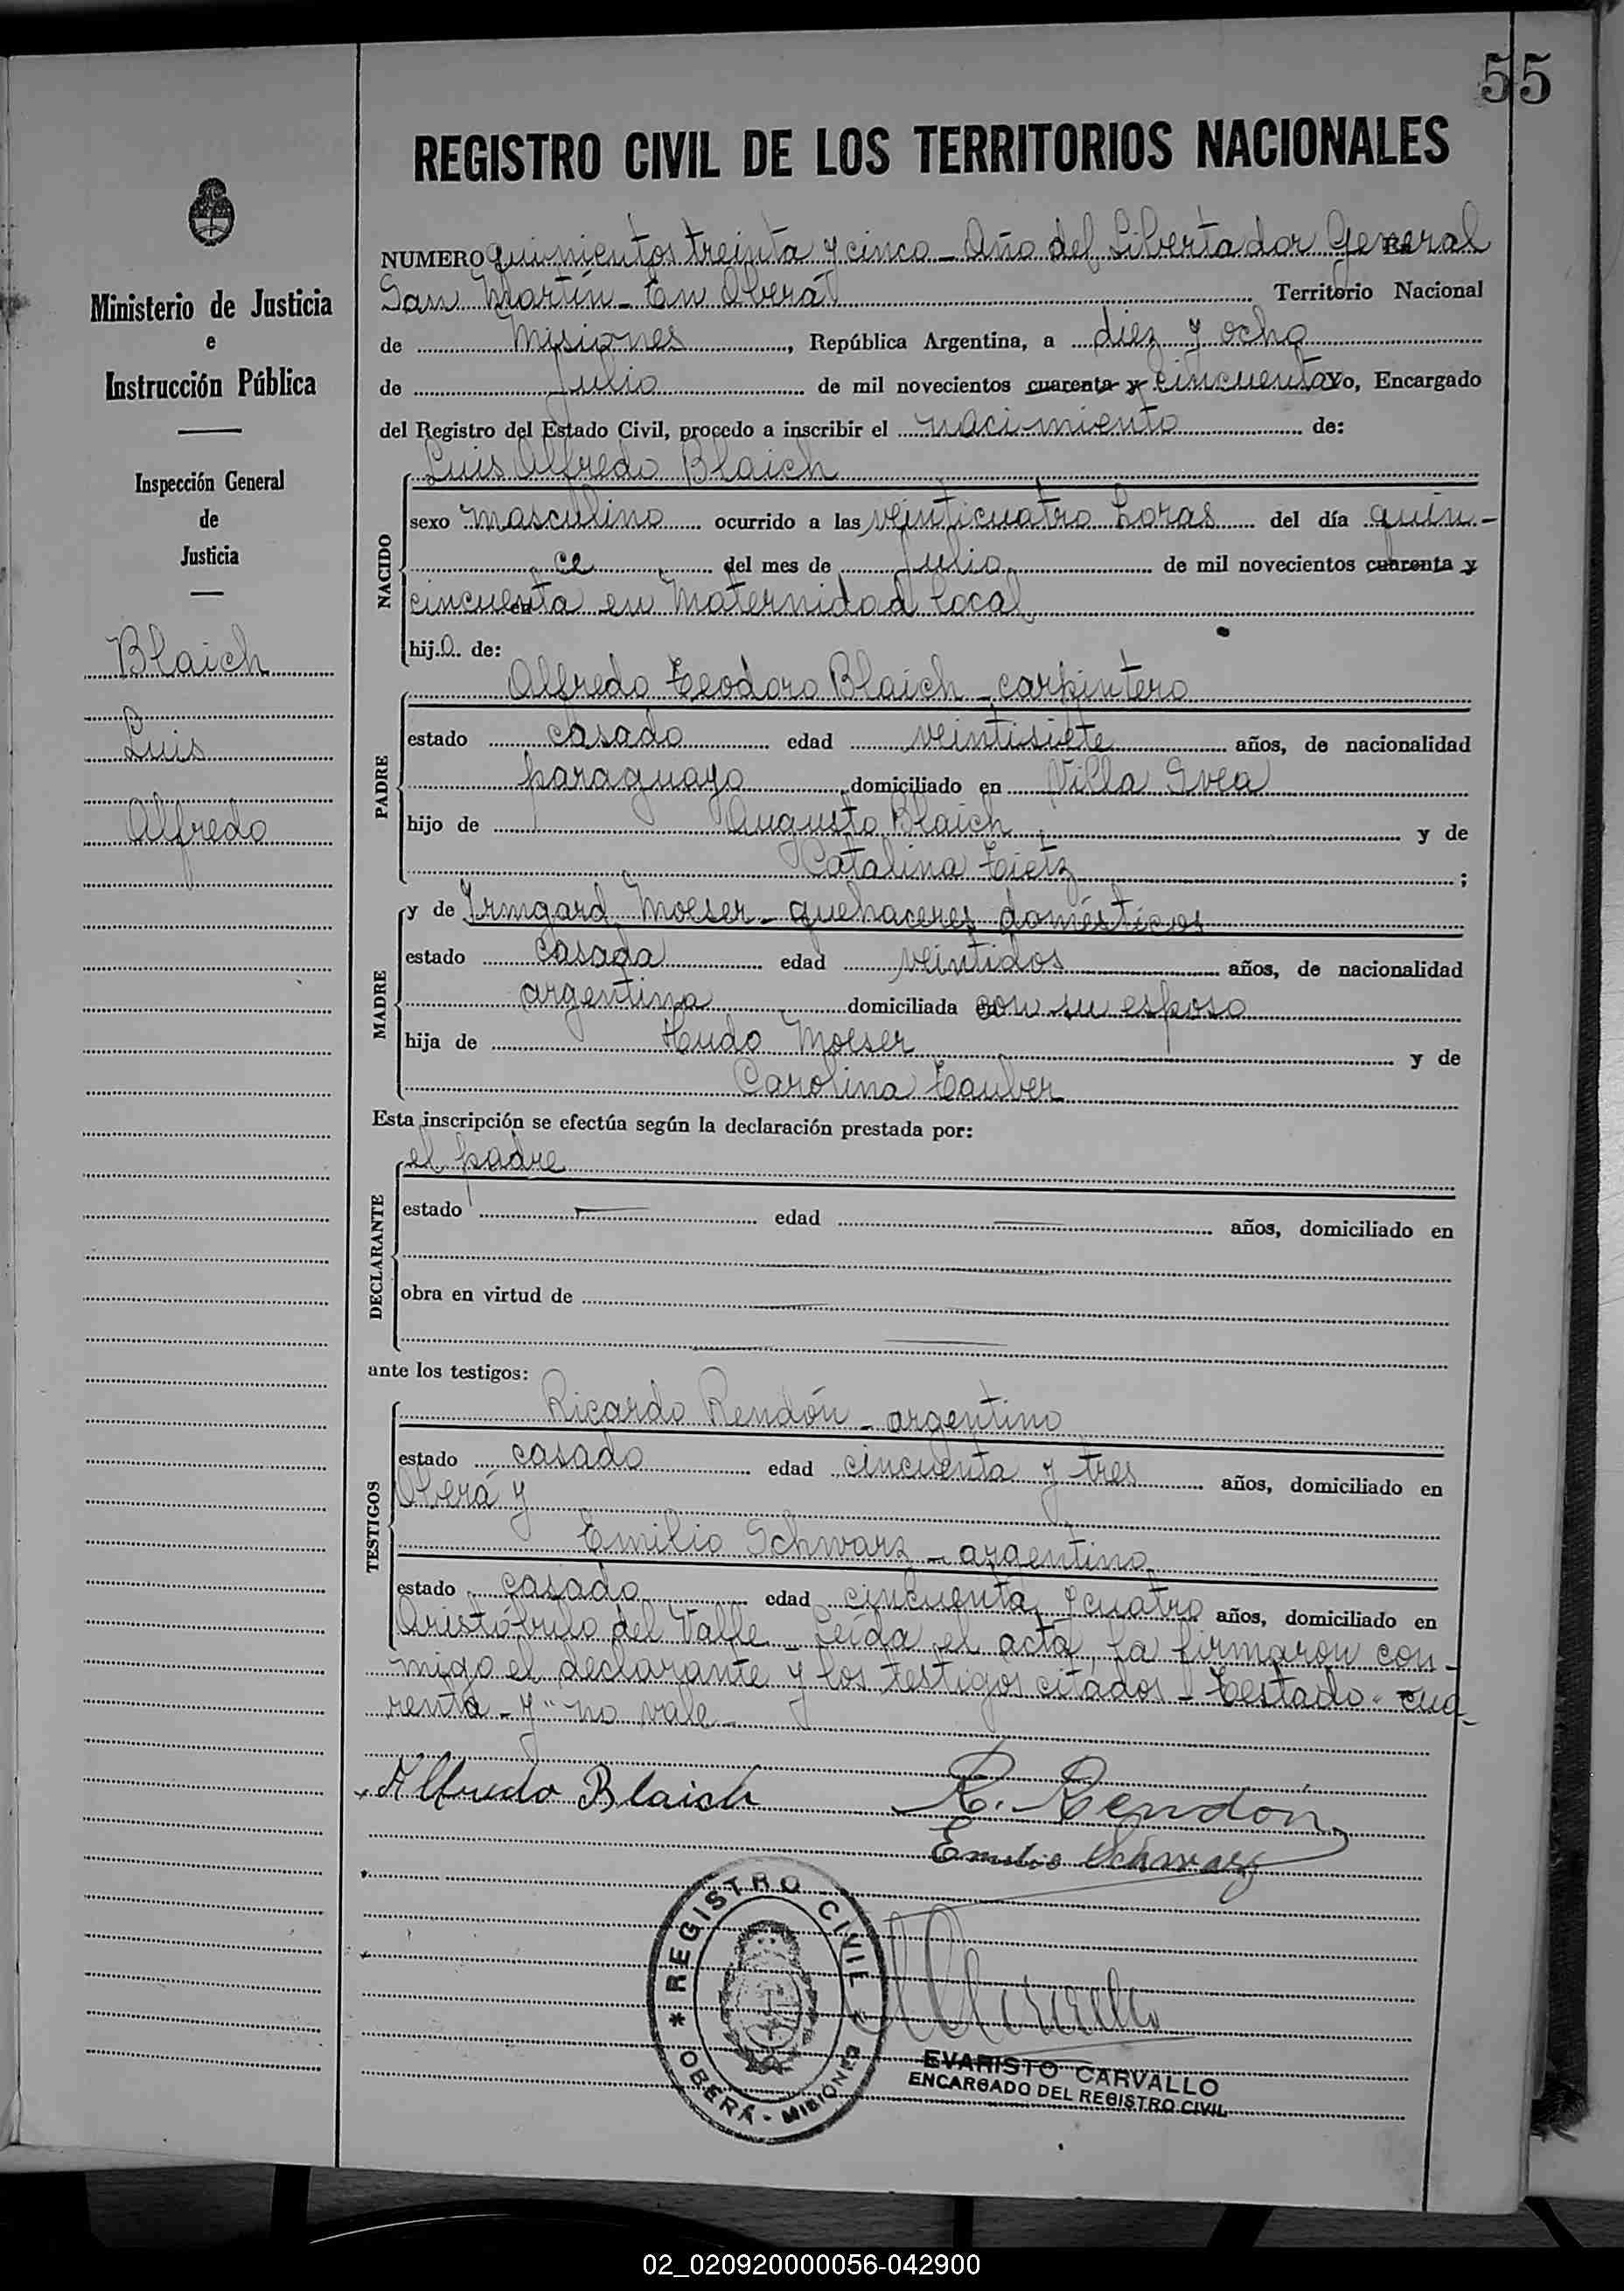 55
REGISTRO CIVIL DE LOS TERRITORIOS NACIONALES
Ministerio de Justicia
e
Instrucción Pública
Inspección General
de
Justicia
Blaich
Luis
Alfredo
NUMERO quinientos treinta y cinco - Año del Libertador General
San Martín - En Oberá Territorio Nacional
de Misiones, República Argentina, a diez y ocho
de Julio de mil novecientos cuarenta y cincuenta Yo, Encargado
del Registro del Estado Civil, procedo a inscribir el nacimiento de:
NACIDO
Luis Alfredo Blaich
sexo masculino ocurrido a las veinticuatro horas del día quin-
ce del mes de Julio de mil novecientos cuarenta y
cincuenta en Maternidad local
hijo de:
PADRE
Alfredo Teodoro Blaich - carpintero
estado casado edad veintisiete años, de nacionalidad
paraguayo domiciliado en Villa Svea
hijo de Augusto Blaich y de
Catalina Tietz ;
MADRE
y de Irmgard Moeser - quehaceres domésticos
estado casada edad veintidos años, de nacionalidad
argentina domiciliada con su esposo
hija de Hudo Moeser y de
Carolina Tauber
Esta inscripción se efectúa según la declaración prestada por:
DECLARANTE
el padre
estado — edad — años, domiciliado en
obra en virtud de
ante los testigos:
TESTIGOS
Ricardo Rendón - argentino
estado casado edad cincuenta y tres años, domiciliado en
Oberá y
Emilio Schwarz - argentino
estado casado edad cincuenta y cuatro años, domiciliado en
Aristóbulo del Valle - Leída el acta, la firmaron con-
migo el declarante y los testigos citados - Testado "cua-
renta - y" no vale -
Alfredo Blaich
R. Rendón
Emilio Schwarz
REGISTRO CIVIL
OBERÁ - MISIONES
EVARISTO CARVALLO
ENCARGADO DEL REGISTRO CIVIL
02_020920000056-042900